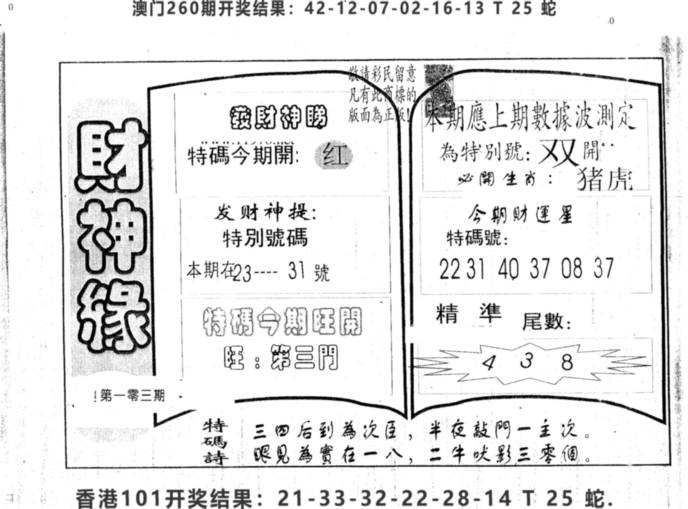 澳门260期开奖结果：42-12-07-02-16-13 T 25 蛇
敬请彩民留意
凡有此商標的
版面為正版!
財神緣
!第一零三期
發財神賜
特碼今期開: 红
发财神提:
特別號碼
本期在23---- 31 號
特碼今期旺開
旺:第三門
本期應上期數據波測定
為特別號: 双 開
必開生肖: 猪虎
今期财運星
特碼號:
22 31 40 37 08 37
精 準 尾數:
4 3 8
特碼詩
三四后到為次臣，半夜敲門一主次。
眼見為實在一八，二牛吠影三零個。
香港101开奖结果：21-33-32-22-28-14 T 25 蛇.